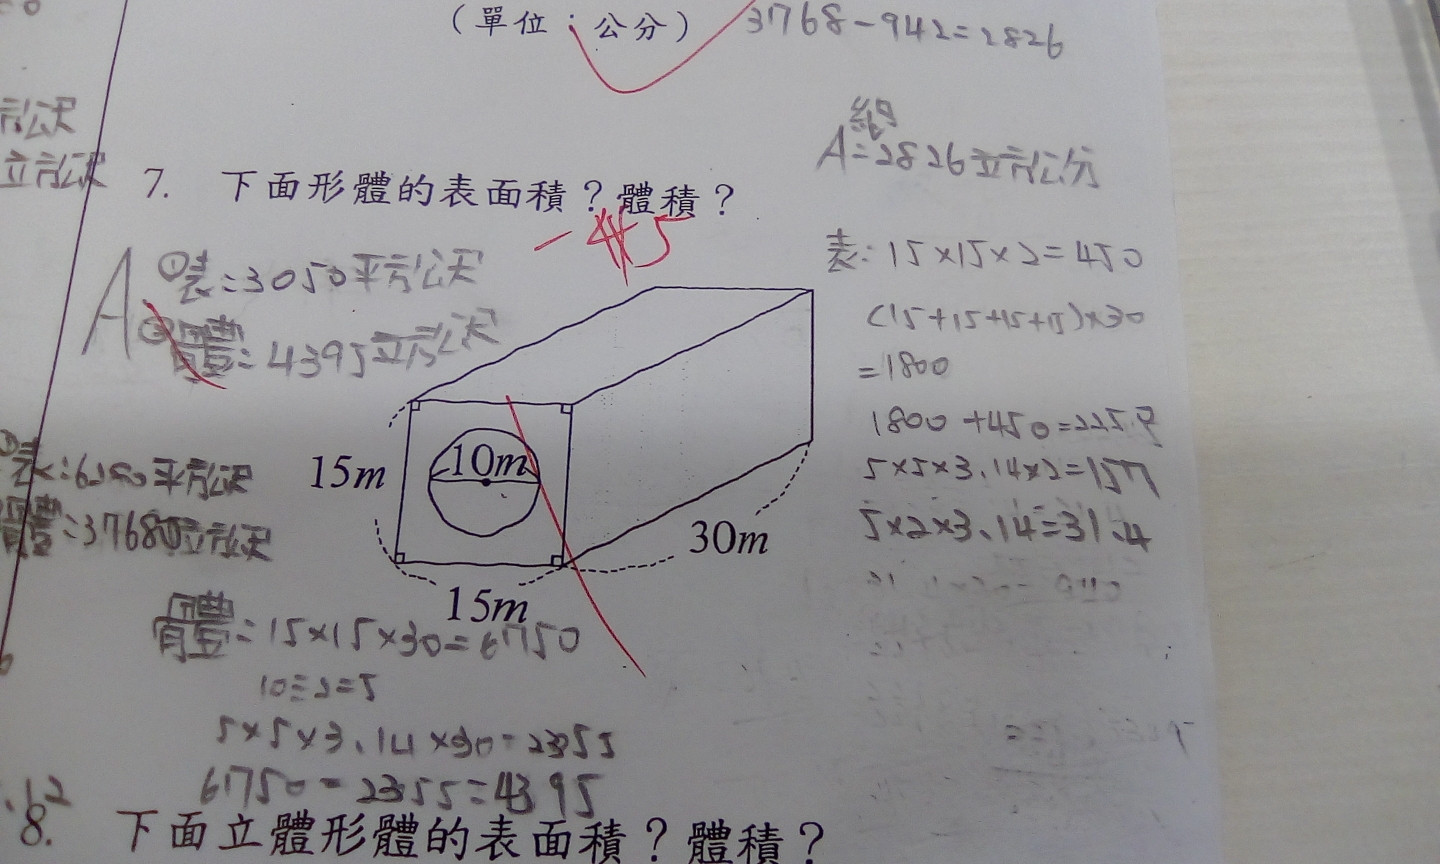 (單位：公分)
3768-942=2826
A=2826立方公分
立方公尺
7. 下面形體的表面積？體積？
-4.5
A ①表:3050平方公尺
②體:4395立方公尺
表:15×15×2=450
(15+15+15+15)×30
=1800
1800+450=2250
5×5×3.14×2=157
5×2×3.14=31.4
10m
15m
30m
15m
平方公尺
立方公尺
體:15×15×30=6750
10÷2=5
5×5×3.14×30=2355
6750-2355=4395
8. 下面立體形體的表面積？體積？